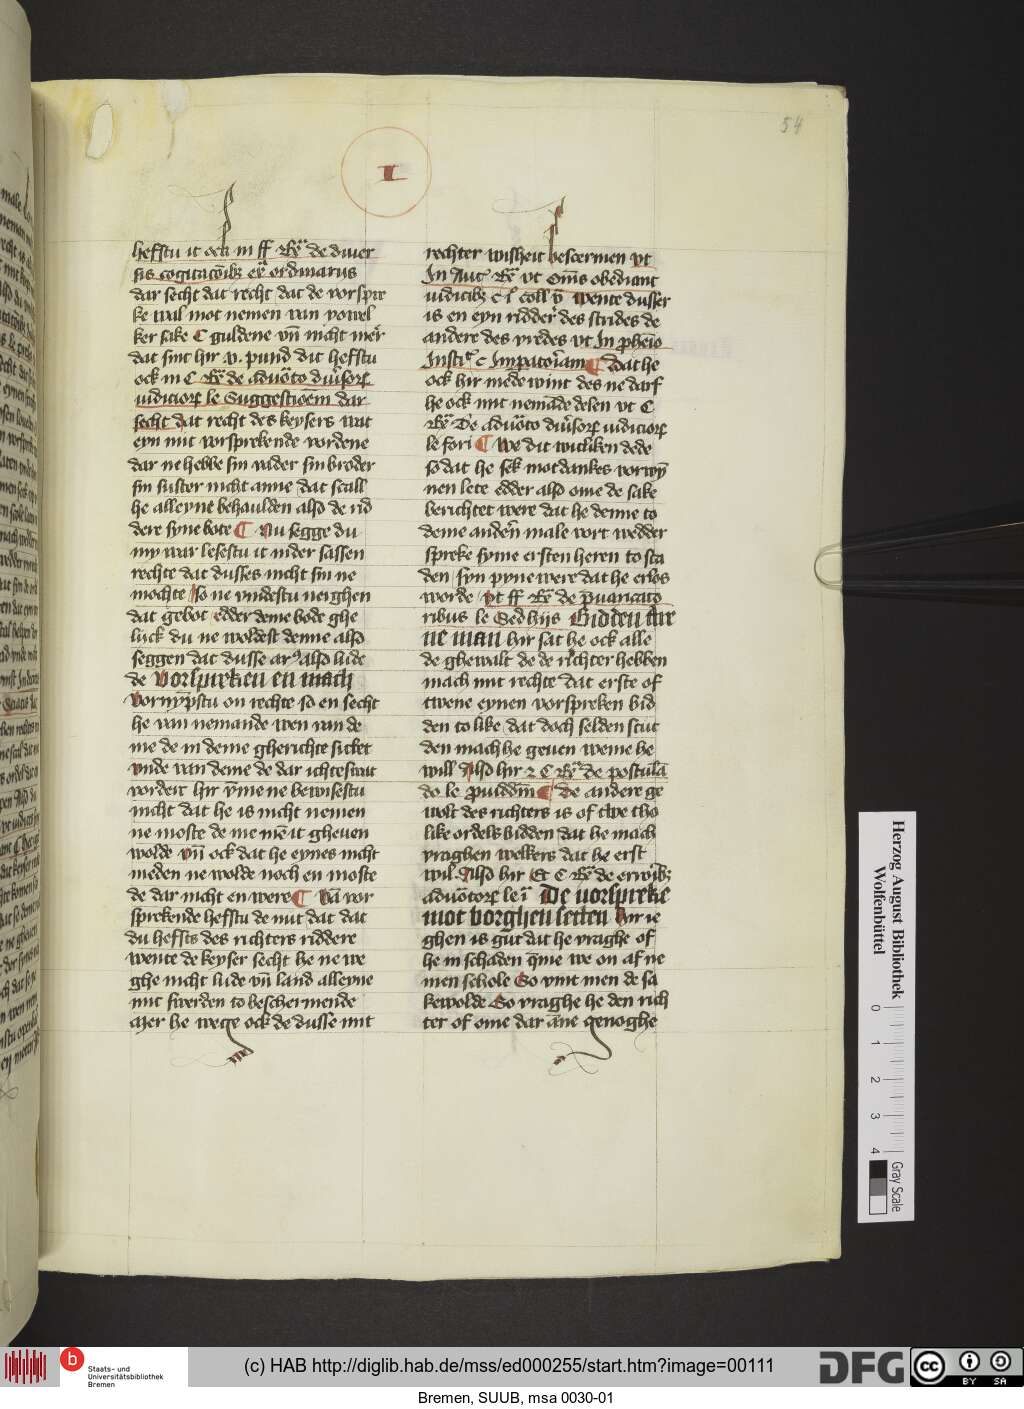 54
I
hefstu it ock in ff Re de diuer
sis cogitacoibz ex ordinarus
dar secht dat recht dat de vorspre
ke wal mot nemen van vowel
ker sake C guldene vn nicht mer
dat sint hir v. pund dit hefstu
ock in C Re de
le Suggestioem dar
secht dat recht des keysers wat
eyn mit vorsprekende vordene
dar ne hebbe sin vader sin broder
sin suster nicht anne dat scall
he alleyne behaulden also de rid
dere syne bote Nu segge du
my war lesestu it in der sassen
rechte dat dusses nicht sin ne
mochte so ne vndestu nerghen
dat gebot edder deme bode ghe
luck du ne woldest denne also
seggen dat dusse also lude
de vorspreken en mach
vornympstu on rechte so en secht
he van nemande wen van de
me de in deme gherichte sittet
vnde van deme de dar ichteswat
vordert hir vme ne bewisestu
nicht dat he is nicht nemen
ne moste de me me it gheuen
wolde vn ock dat he eynes nicht
meden ne wolde noch en moste
de dar nicht en were Va vor
sprekende hefstu de nut dat dat
du heffts des richters riddere
wente de keyser secht he ne we
ghe nicht lude vn land alleyne
mit swerden to beschermende
Mer he wege ock de dusse mit
rechter wisheit bescermen vt
In Aut Re vt Oms obediant
iudicibz c i coll v wente dusser
is en eyn ridder des strides de
andere des vredes vt In pheio
Insti c Impatoriam dat he
ock hir mede wint des ne darf
he ock mit nemade delen vt C
Re De
le fori we dit witliken dede
so dat he sek mot dankes vorwyn
nen lete edder also ome de sake
berichtet were dat he denne to
deme andern male vort wedder
spreke syme ersten heren to sta
den syn pyne were dat he erlos
worde vt ff Re de puaricato
ribus le Sed hijs Bidden dre
ne man hir sat he ock alle
de ghewalt de de richter hebben
mach mit rechte dat erste of
twene eynen vorspreken bid
den to like dat doch selden scut
den mach he geuen weme he
will Also hir 2 C Re de postula
do le De andere ge
wolt des richters is of twe tho
like ordels bidden dat he mach
vraghen welkers dat he erst
wil Also hir Et C Re de
le i De vorspreke
mot borghen setten Hir ie
ghen is gut dat he vraghe of
he in schaden qme we on af ne
men schole So vint men de sa
kewolde So vraghe he den rich
ter of ome dar ane genoghe
Herzog August Bibliothek
Wolfenbüttel
0 1 2 3 4
Gray Scale
b
Staats- und
Universitätsbibliothek
Bremen
(c) HAB http://diglib.hab.de/mss/ed000255/start.htm?image=00111
DFG
cc BY SA
Bremen, SUUB, msa 0030-01